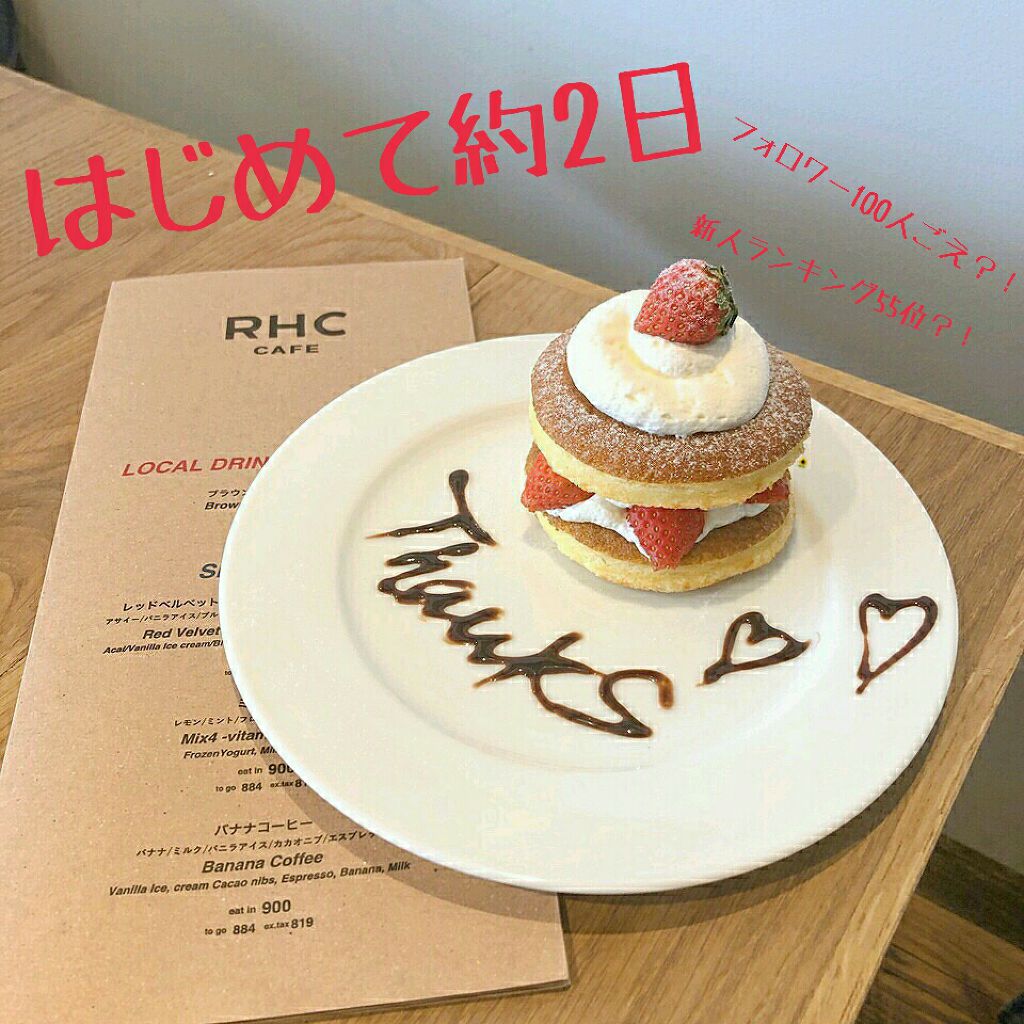 はじめて約2日
フォロワー100人ごえ?!
新人ランキング55位?!
RHC
CAFE
LOCAL DRIN
ブラウン
Brow
レッドベルベット
アサイー/バニラアイス/ブル
Red Velvet
Acai/Vanilla Ice cream/Bl
レモン/ミント/フロ
Mix4 -vitam
FrozenYogurt, Min
eat in 900
to go 884 ex.tax 81
バナナコーヒー
バナナ/ミルク/バニラアイス/カカオニブ/エスプレッ
Banana Coffee
Vanilla Ice, cream Cacao nibs, Espresso, Banana, Milk
eat in 900
to go 884 ex.tax 819
Thanks